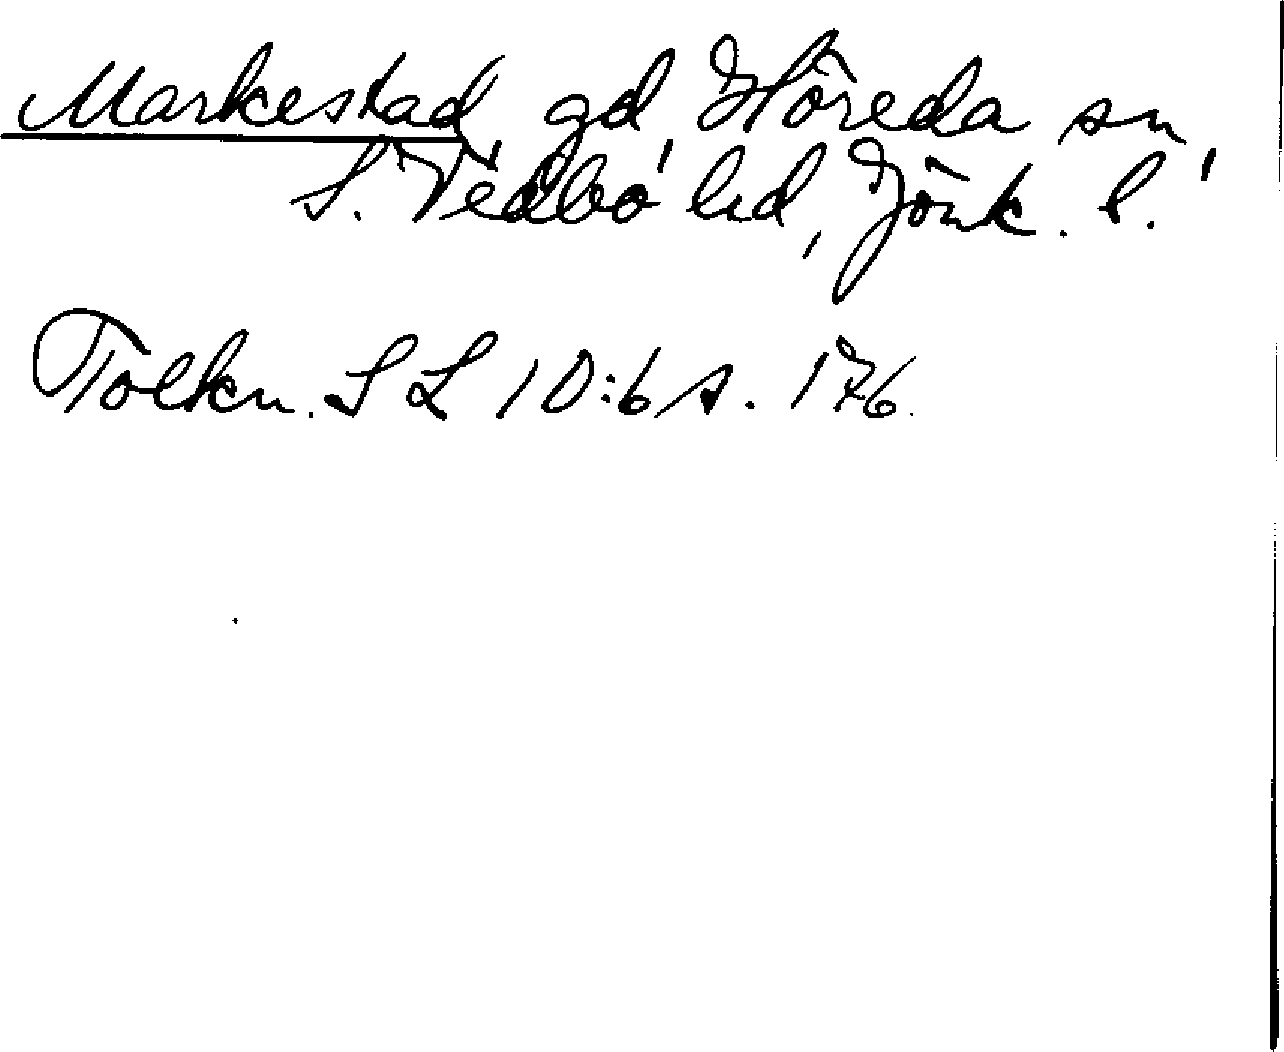 Markestad, gd, Höreda sn,
S. Vedbo hd, Jönk. l.
Tolkn. SL 10:6 s. 176.